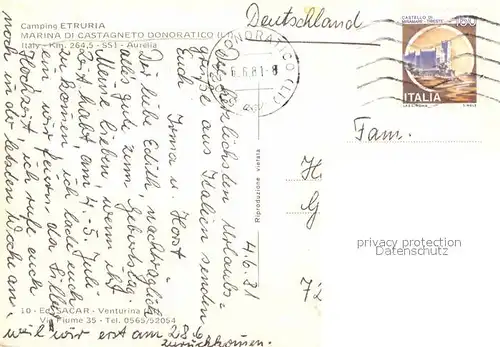 Camping ETRURIA
MARINA DI CASTAGNETO DONORATICO (LI)
Italy - Km. 264,5 - SS1 - Aurelia
Die herzlichsten Urlaubs-
grüße aus Italien senden
Euch Irma u. Horst
Dir liebe Edith, nachträglich
alles gute zum Geburtstag.
Meine lieben, wenn ihr
Zeit habt, am 4-5. Juli
zu kommen, ich lade euch
ein, wir feiern, die Silber
Hochzeit ich rufe euch
noch in der letzten Woche an.
weil wir erst am 28.6
zurückkommen.
4.6.81
10 - Ed. SACAR - Venturina
Via Fiume 35 - Tel. 0565/52054
Riproduzione vietata
Deutschland
DONORATICO (LI)
6.6.81-8
CASTELLO DI
MIRAMARE - TRIESTE
ITALIA
Fam.
H
G
72
privacy protection
Datenschutz